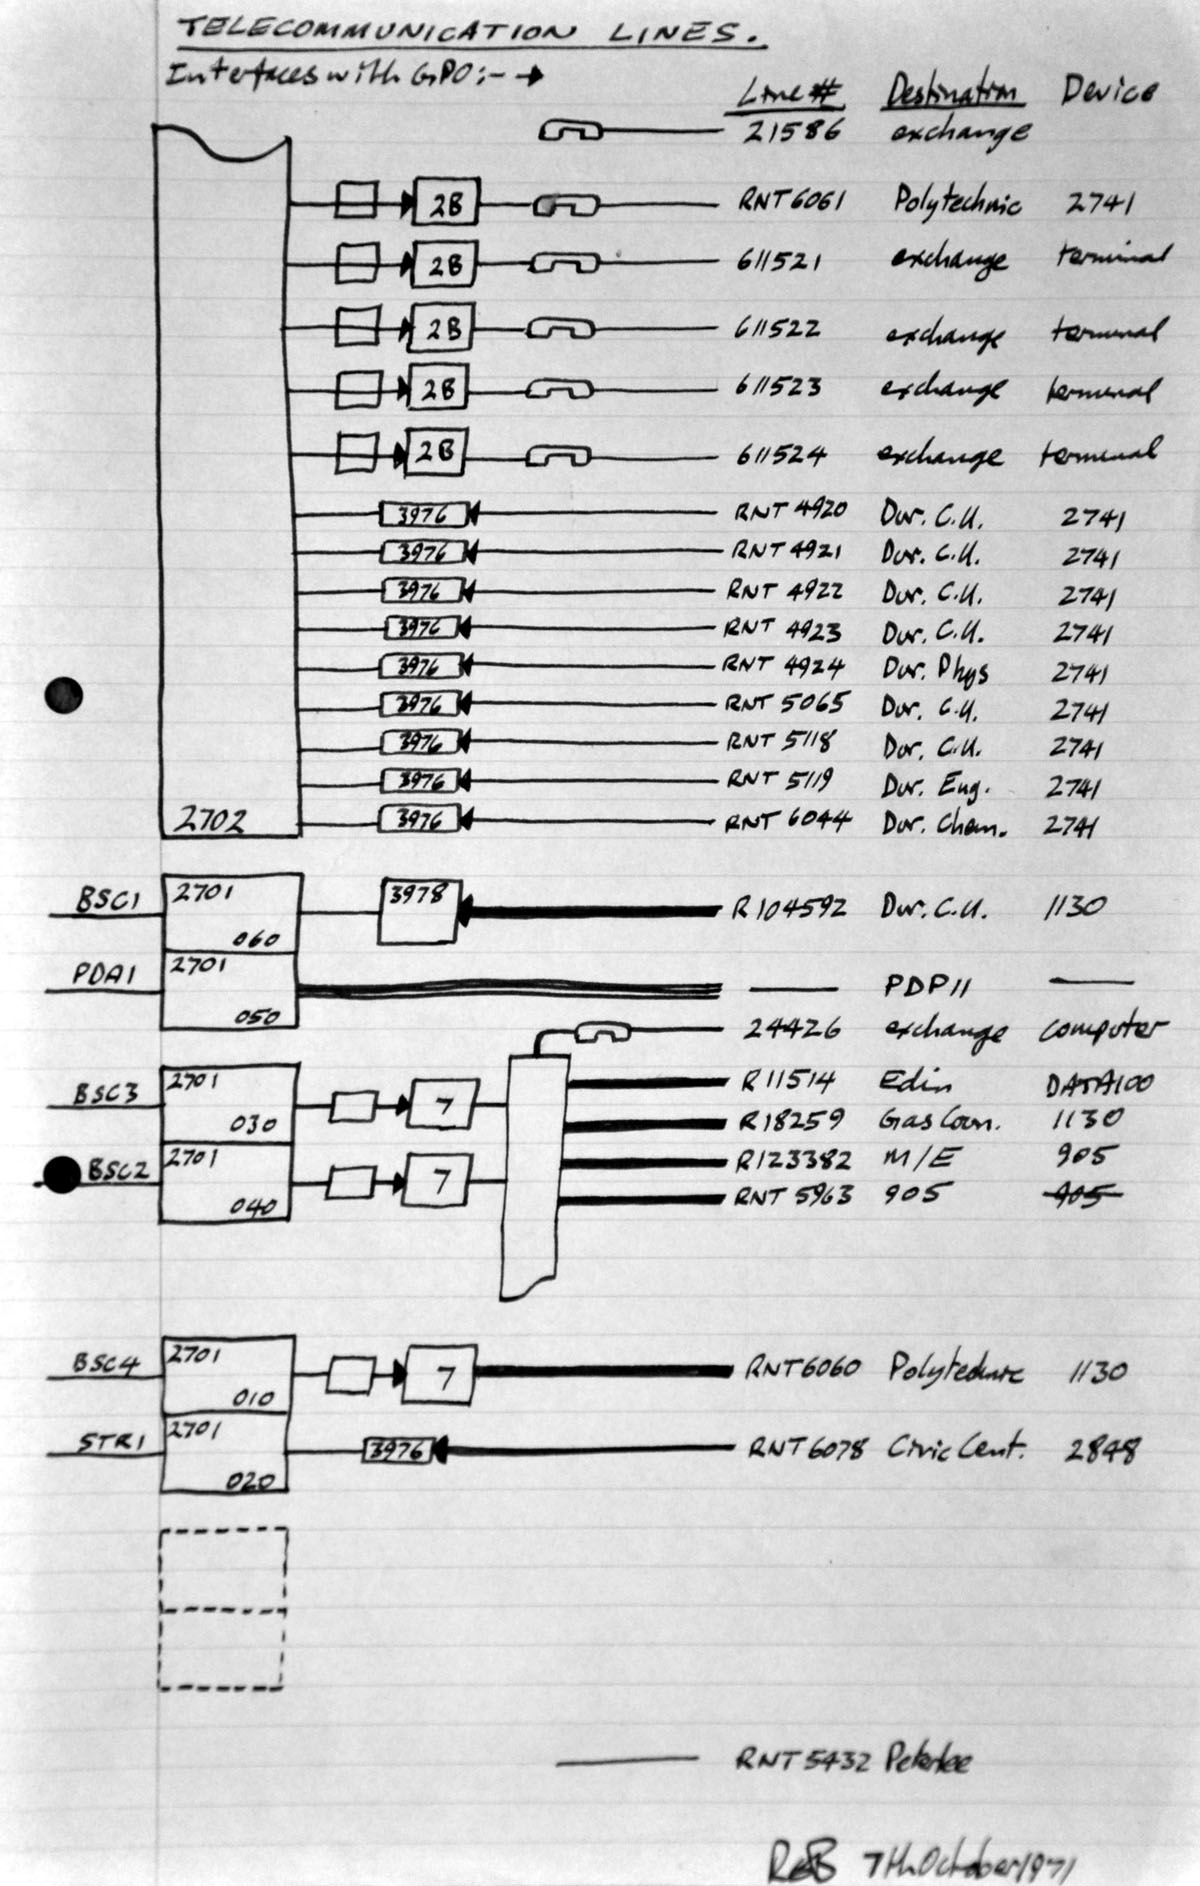 TELECOMMUNICATION LINES.
Interfaces with GPO:- →
Line # Destination Device
21586 exchange
2B RNT6061 Polytechnic 2741
2B 611521 exchange terminal
2B 611522 exchange terminal
2B 611523 exchange terminal
2B 611524 exchange terminal
3976 RNT 4920 Dur. C.U. 2741
3976 RNT 4921 Dur. C.U. 2741
3976 RNT 4922 Dur. C.U. 2741
3976 RNT 4923 Dur. C.U. 2741
3976 RNT 4924 Dur. Phys 2741
3976 RNT 5065 Dur. C.U. 2741
3976 RNT 5118 Dur. C.U. 2741
3976 RNT 5119 Dur. Eng. 2741
2702 3976 RNT 6044 Dur. Chem. 2741
2701 3978
BSC1 R104592 Dur. C.U. 1130
060
2701
PDA1 PDP11
050
24426 exchange computer
2701 R11514 Edin DATA100
BSC3 7 R18259 Gas Coun. 1130
030
2701 R123382 M/E 905
BSC2 7 RNT 5963 905 905
040
2701
BSC4 7 RNT6060 Polytechnic 1130
010
2701
STR1 3976 RNT6078 Civic Cent. 2848
020
RNT5432 Peterlee
7th October 1971